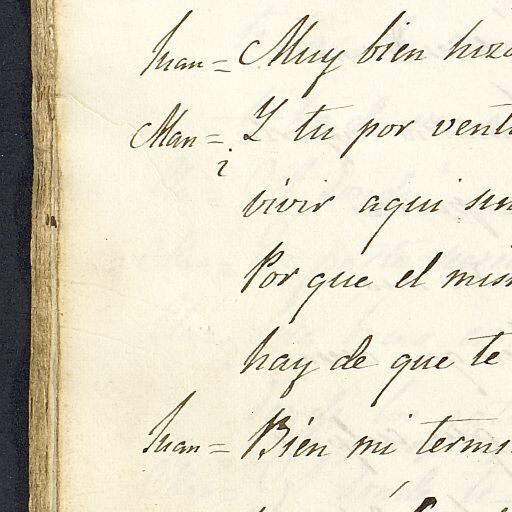 Juan = Muy bien hizo
Man = ¿Y tu por vent
vivir aqui sin
Por que el mis
hay de que te
Juan = Bién mi term